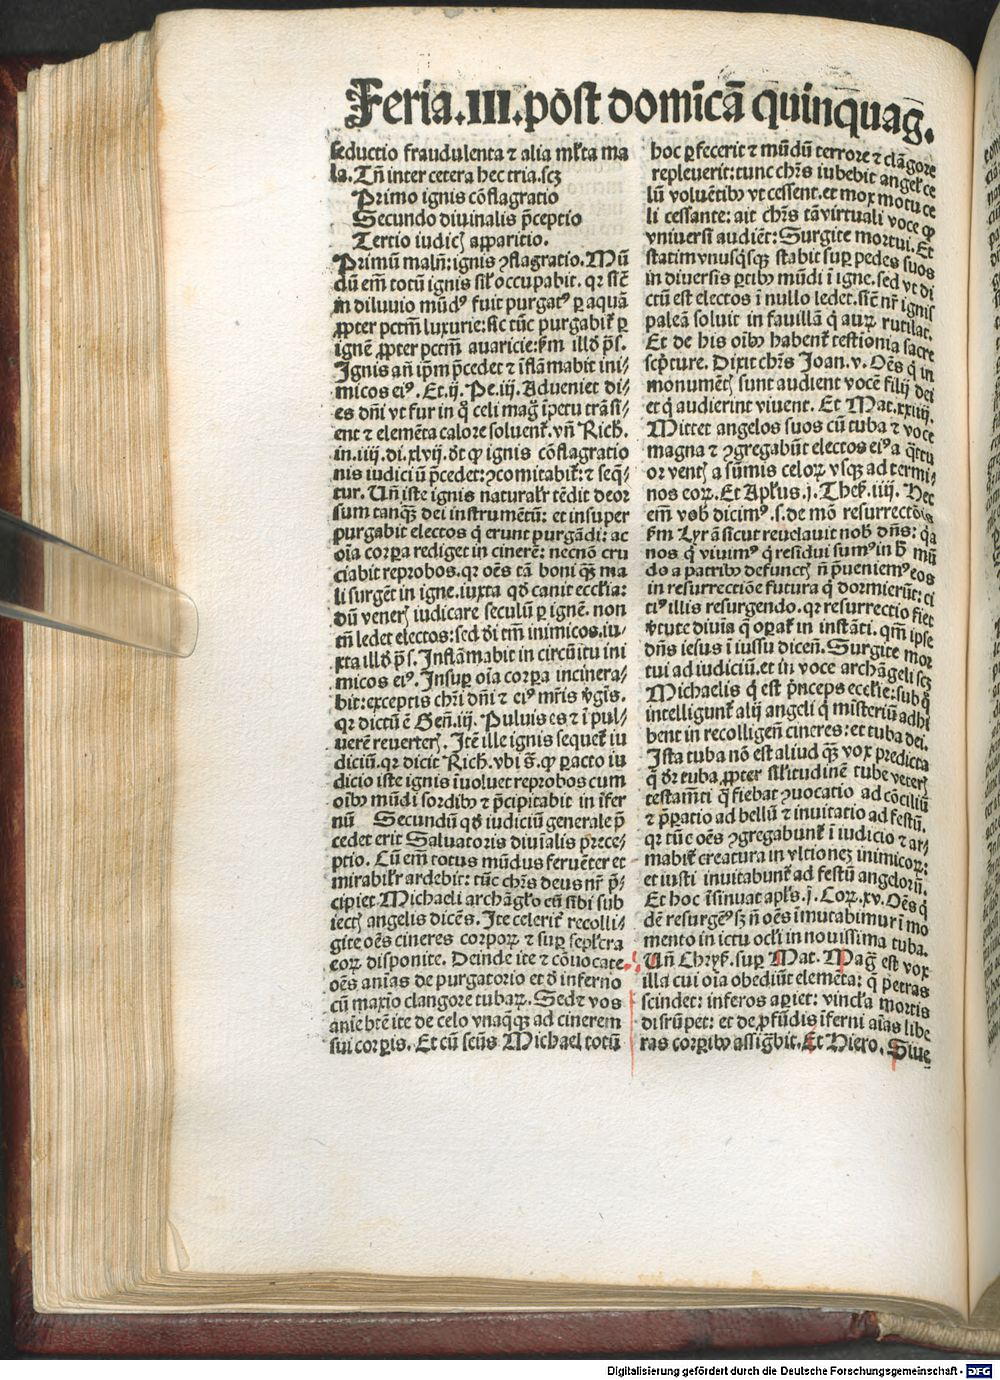 Feria.III.post domīcā quinquaḡ.
seductio fraudulenta ⁊ alia ml̓ta ma
la. Tn̄ inter cetera hec tria.scꝫ
Primo ignis cōflagratio
Secundo diuinalis p̄ceptio
Tertio iudicꝭ apparitio.
Primū maln̄: ignis ꝯflagratio. Mū
dū em̄ totū ignis sil̓ occupabit. qꝛ sic̄
in diluuio mūdꝰ fuit purgatꝰ ꝑ aquā
ꝓpter pctm̄ luxurie: sic tūc purgabit̄ ꝑ
ignē ꝓpter pctm̄ auaricie: ẜm illđ ps̄.
Ignis an̄ ip̄m p̄cedet ⁊ īflāmabit ini-
micos eiꝰ. Et.ij. Pe.iij. Adueniet di-
es dn̄i vt fur in q̊ celi mag̊ īpetu trāsi-
ent ⁊ elemēta calore soluent̄. vn̄ Rich̄.
in.iiij.di.xlvij. đt ꝙ ignis cōflagratio
nis iudiciū p̄cedet: ꝯcomitabit̄: ⁊ seq̄-
tur. Un̄ iste ignis natural̓r tēdit deor
sum tanqꝫ dei instrumētū: et insuper
purgabit electos q̇ erunt purgādi: ac
oīa corꝑa rediget in cinerē: necnō cru
ciabit reprobos. qꝛ oēs tā boni qꝫ ma
li surgēt in igne. iuxta qđ canit eccl̓ia:
Dū venerꝭ iudicare seculū ꝑ ignē. non
tn̄ ledet electos: sed đi tm̄ inimicos. iu-
xta illđ ps̄. Inflāmabit in circūitu ini
micos eiꝰ. Insuꝑ oīa corꝑa incinera-
bit: exceptis chr̄i dn̄i ⁊ eiꝰ mr̄is v̓gīs.
qꝛ dictū ē Gen̄.iij. Puluis es ⁊ ī pul-
uerē reuerterꝭ. Itē ille ignis sequet̄ iu
diciū. qꝛ dicit Rich̄. vbi s̄. ꝙ ꝑacto iu
dicio iste ignis īuoluet reprobos cum
oībꝰ mūdi sordibꝰ ⁊ p̄cipitabit in īfer
nū Secundū qđ iudiciū generale p̄
cedet erit Saluatoris diuīalis prece-
ptio. Cū em̄ totus mūdus feruēter et
mirabil̓r ardebit: tūc chr̄s deus nr̄ p̄-
cipiet Michaeli archāgl̓o cū sibi sub
iectꝭ angelis dicēs. Ite celerit̄ recolli-
gite oēs cineres corporꝝ ⁊ suꝑ sepl̓cra
eorꝝ disponite. Deinde ite ⁊ cōuocate
oēs anīas de purgatorio et đ inferno
cū maxīo clangore tubarꝝ. Sed ⁊ vos
anīe btē ite de celo vnaqꝫqꝫ ad cinerem
sui corꝑis. Et cū scūs Michael totū
hoc ꝑfecerit ⁊ mūdū terrore ⁊ clāgore
repleuerit: tunc chr̄s iubebit angel̓ ce
lū voluētibꝰ vt cessent. et mox motu ce
li cessante: ait chr̄s tā virtuali voce ꝙ
vniuersi audiēt: Surgite mortui. Et
statim vnusqꝫsqꝫ stabit suꝑ pedes suos
in diuersis ꝑtibꝰ mūdi ī igne. sed vt di
ctū est electos ī nullo ledet. sic̄ nr̄ ignis
paleā soluit in fauillā q̇ aurꝝ rutilat.
Et de his oībꝰ habent̄ testīonia sacre
scp̄ture. Dixit chr̄s Joan.v. Oēs q̇ in
monumētꝭ sunt audient vocē filij dei
et q̇ audierint viuent. Et Mat.xxiiij.
Mittet angelos suos cū tuba ⁊ voce
magna ⁊ ꝯgregabūt electos eiꝰ a q̄ttu
or ventꝭ a sūmis celorꝝ vsqꝫ ad termi-
nos eorꝝ. Et Apl̓us.j. Thes̄.iiij. Hec
em̄ vob̄ dicimꝰ.s. de mō resurrectōis
ẜm Lyrā sicut reuelauit nob̄ dn̄s: q̓a
nos q̇ viuimꝰ q̇ residui sumꝰ in h̄ mū
do a patribꝰ defunctꝭ n̄ p̄ueniemꝰ eos
in resurrectiōe futura q̇ dormierūt: ci
tiꝰ illis resurgendo. qꝛ resurrectio fiet
v̓tute diuīa q̄ oꝑat̄ in instāti. qm̄ ipse
dn̄s iesus ī iussu dicen̄. Surgite mor
tui ad iudiciū. et in voce archāgeli scꝫ
Michaelis q̇ est p̄nceps eccl̓ie: sub q̊
intelligunt̄ alij angeli q̇ misteriū adhi
bent in recolligen̄ cineres: et tuba dei.
Ista tuba nō est aliud qꝫ vox predicta
q̄ dr̄ tuba ꝓpter sil̓itudinē tube veterꝭ
testam̄ti q̄ fiebat ꝯuocatio ad cōciliū
⁊ p̄paratio ad bellū ⁊ inuitatio ad festū.
qꝛ tūc oēs ꝯgregabunt̄ ī iudicio ⁊ ar-
mabit̄ creatura in vltionez inimicorꝝ:
et iusti inuitabunt̄ ad festū angelorū.
Et hoc īsinuat apl̓s.j. Corꝝ.xv. Oēs q̇
dē resurgemꝰ sꝫ n̄ oēs īmutabimur ī mo
mento in ictu ocl̓i in nouissima tuba.
Un̄ Chrys̄. suꝑ Mat. Maḡ est vox
illa cui oīa obediūt elemēta: q̄ petras
scindet: inferos aꝑiet: vincl̓a mortis
disrūpet: et de ꝓfūdis īferni aīas libe
ras corꝑibꝰ assig̅bit. Et Hiero. Siue
Digitalisierung gefördert durch die Deutsche Forschungsgemeinschaft - DFG